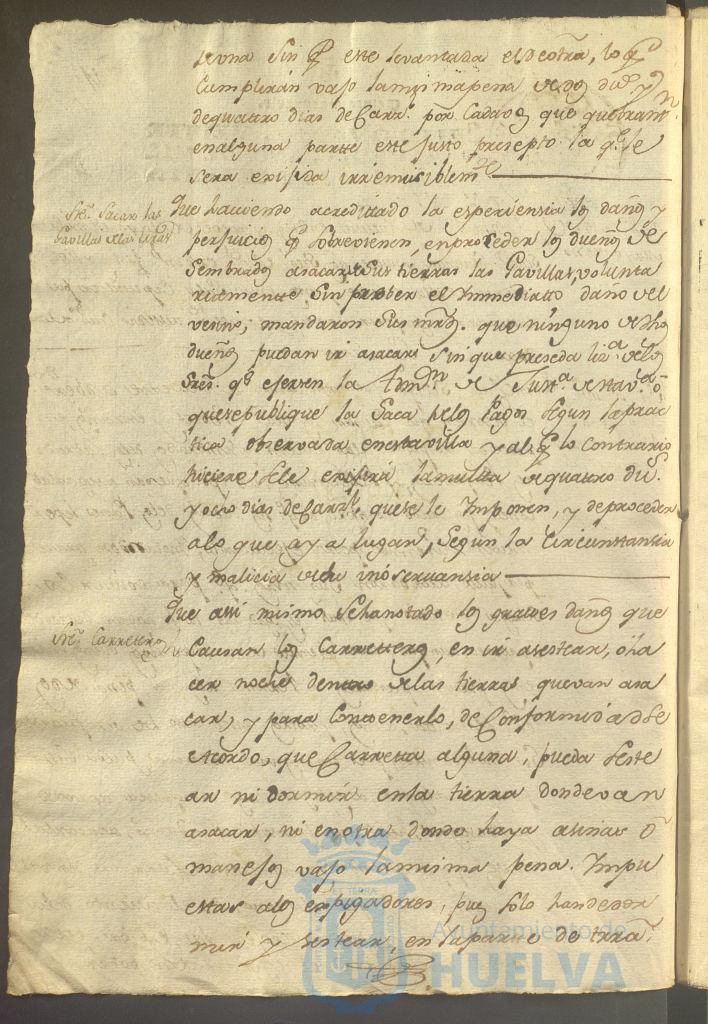 de una sin q.e este levantada el de otra, lo q.e
Cumplirán vajo la misma pena de dos du.s y
de quattro dias de Carz.l por Cada vez que quebrant.n
en alguna partte este justo presepto la q.e le
sera exijida irremisiblem.te
Sre. Sacar las
Gavillas de las tierras
Que haviendo acreditado la esperiensia los daños y
perjuicios q.e sobrevienen, en proceder los dueños de
Sembrados a sacar de sus tierras las Gavillas, volunta
riamentte sin preber el Ymmediatto daño del
vesino; mandaron Sus mrds. que ninguno de dhos
dueños puedan ir a sacar sin que preseda liz.a de los
Sres. q.e ejersen la Adm.on de Just.a de esta v.a o
que se publique la Saca de los Pagos segun la prac
tica observada en esta villa y al q.e lo contrario
hiciere se le exijirá la multta de quattro du.s
y ocho dias de Carz.l que se le Ymponen, y de proceder
a lo que aya lugar, según la Circunstansia
y malicia de su inoservansia
Sre. Carretteros
Que assi mismo se ha nottado los graves daños que
Causan los Carretteros, en ir a sestear, ó ha
cer noche dentro de las tierras que van a sa
car, y para Conttenerlo, de Conformidad se
acordo, que Carretta alguna, pueda seste
ar ni dormir en la tierra donde van
a sacar, ni en otra donde haya asinas ó
manojos vajo la misma pena Ympu
estas a los espigadores, pues solo han de dor
mir y sestear, en la partte de trra.
Ayuntamiento de
HUELVA